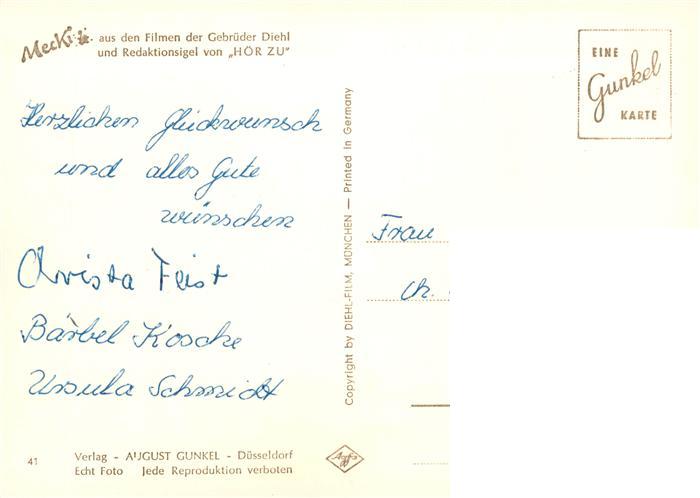 Mecki aus den Filmen der Gebrüder Diehl
und Redaktionsigel von „HÖR ZU"
EINE
Gunkel
KARTE
Herzlichen Glückwunsch
und alles Gute
wünschen
Christa Feist
Bärbel Kosche
Ursula Schmidt
Copyright by DIEHL-FILM, MÜNCHEN — Printed in Germany
Frau
Ch.
41
Verlag - AUGUST GUNKEL - Düsseldorf
Echt Foto Jede Reproduktion verboten
Agfa